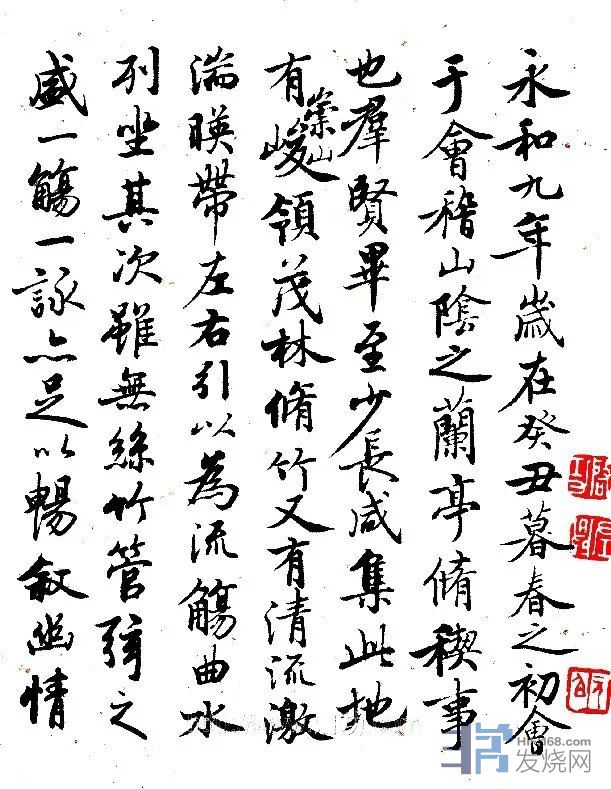 永和九年歲在癸丑暮春之初會
于會稽山陰之蘭亭脩稧事
也羣賢畢至少長咸集此地
有崇山峻領茂林脩竹又有清流激
湍暎帶左右引以為流觴曲水
列坐其次雖無絲竹管弦之
盛一觴一詠亦足以暢叙幽情
發烧网